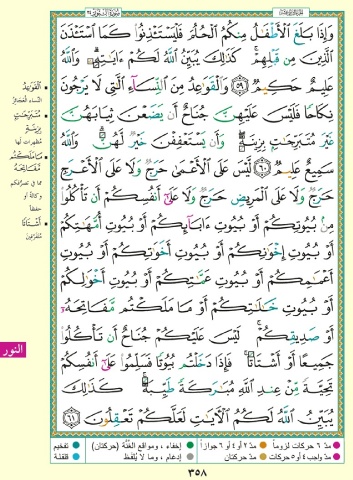 وَإِذَا بَلَغَ الْأَطْفَالُ مِنكُمُ الْحُلُمَ فَلْيَسْتَأْذِنُوا كَمَا اسْتَأْذَنَ
الَّذِينَ مِن قَبْلِهِمْ ۚ كَذَٰلِكَ يُبَيِّنُ اللَّهُ لَكُمْ آيَاتِهِ ۗ وَاللَّهُ
عَلِيمٌ حَكِيمٌ ٥٩ وَالْقَوَاعِدُ مِنَ النِّسَاءِ اللَّاتِي لَا يَرْجُونَ
نِكَاحًا فَلَيْسَ عَلَيْهِنَّ جُنَاحٌ أَن يَضَعْنَ ثِيَابَهُنَّ
غَيْرَ مُتَبَرِّجَاتٍ بِزِينَةٍ ۖ وَأَن يَسْتَعْفِفْنَ خَيْرٌ لَّهُنَّ ۗ وَاللَّهُ
سَمِيعٌ عَلِيمٌ ٦٠ لَّيْسَ عَلَى الْأَعْمَىٰ حَرَجٌ وَلَا عَلَى الْأَعْرَجِ
حَرَجٌ وَلَا عَلَى الْمَرِيضِ حَرَجٌ وَلَا عَلَىٰ أَنفُسِكُمْ أَن تَأْكُلُوا
مِن بُيُوتِكُمْ أَوْ بُيُوتِ آبَائِكُمْ أَوْ بُيُوتِ أُمَّهَاتِكُمْ
أَوْ بُيُوتِ إِخْوَانِكُمْ أَوْ بُيُوتِ أَخَوَاتِكُمْ أَوْ بُيُوتِ
أَعْمَامِكُمْ أَوْ بُيُوتِ عَمَّاتِكُمْ أَوْ بُيُوتِ أَخْوَالِكُمْ
أَوْ بُيُوتِ خَالَاتِكُمْ أَوْ مَا مَلَكْتُم مَّفَاتِحَهُ
أَوْ صَدِيقِكُمْ ۚ لَيْسَ عَلَيْكُمْ جُنَاحٌ أَن تَأْكُلُوا
جَمِيعًا أَوْ أَشْتَاتًا ۚ فَإِذَا دَخَلْتُم بُيُوتًا فَسَلِّمُوا عَلَىٰ أَنفُسِكُمْ
تَحِيَّةً مِّنْ عِندِ اللَّهِ مُبَارَكَةً طَيِّبَةً ۚ كَذَٰلِكَ
يُبَيِّنُ اللَّهُ لَكُمُ الْآيَاتِ لَعَلَّكُمْ تَعْقِلُونَ ٦١
القواعد
النساء العجائز
متبرجات بزينة
مظهرات لها
ما ملكتم مفاتحه
مما في تصرفكم
وكالة أو
حفظا
أشتاتا
متفرقين
النور
مدّ ٦ حركات لزوماً
مدّ ٢ أو ٤ أو ٦ جوازاً
إخفاء، ومواقع الغُنَّة (حركتان)
تفخيم
مدّ واجب ٤ أو ٥ حركات
مدّ حركتان
إدغام، وما لا يُلفَظ
قلقلة
٣٥٨